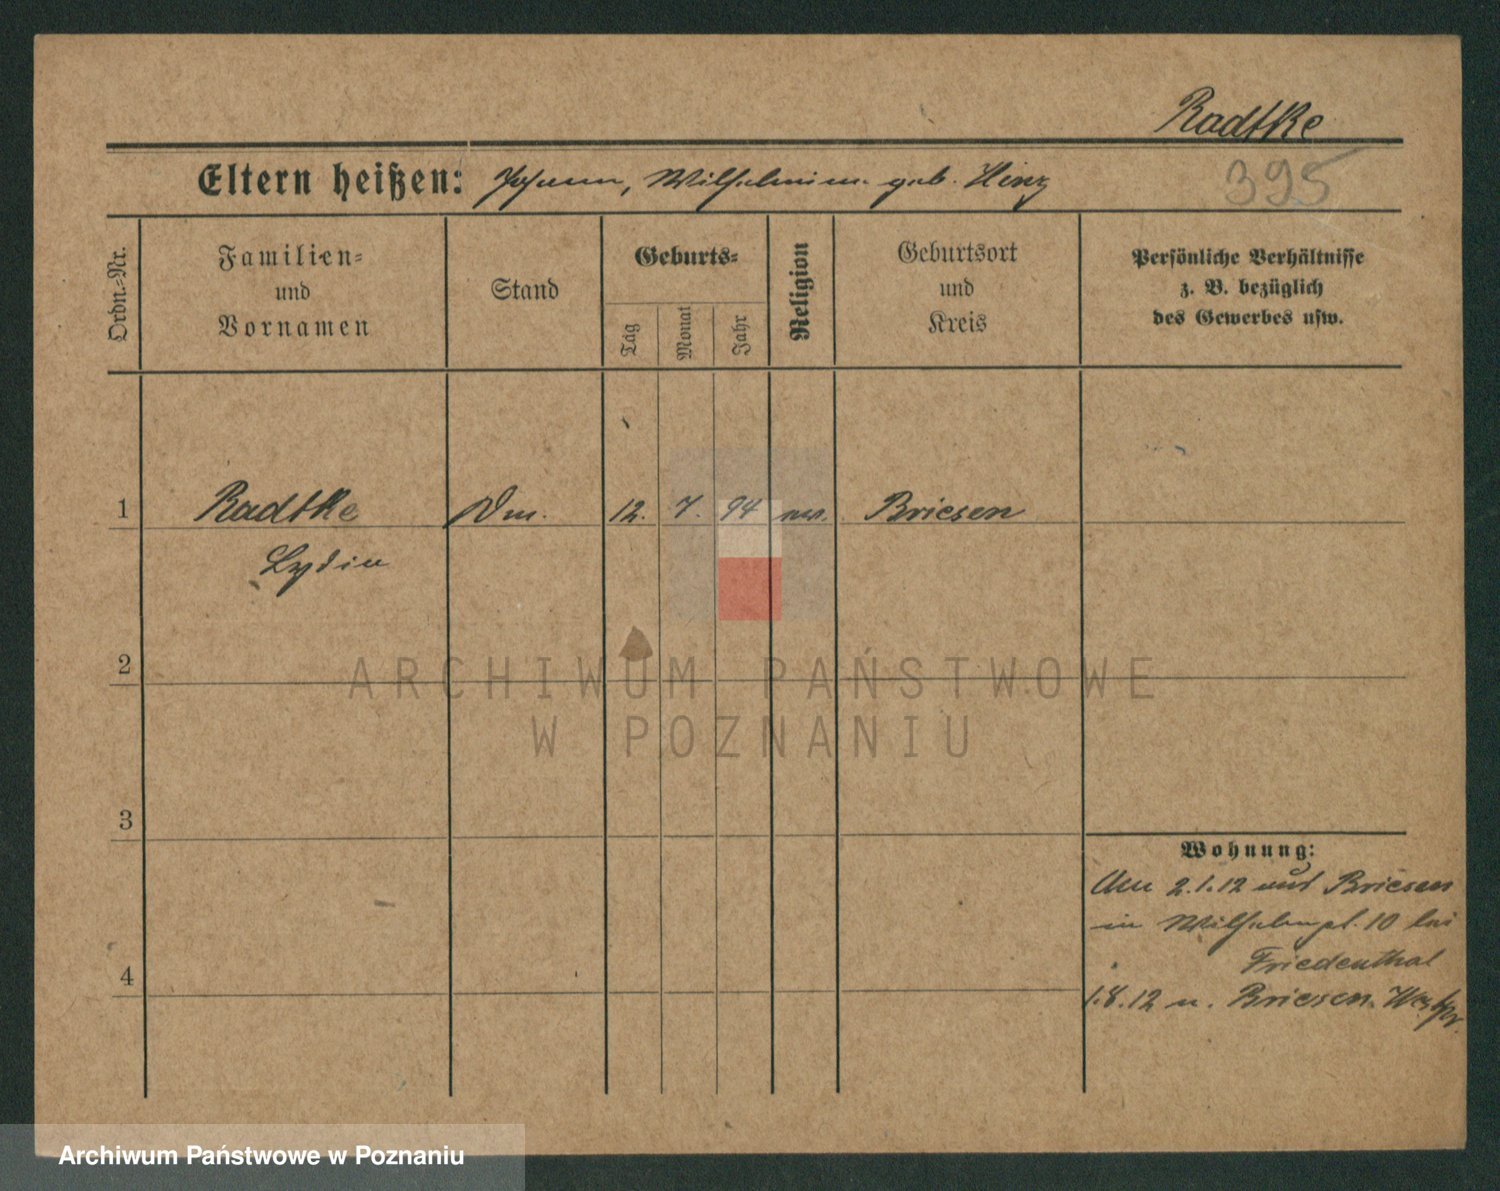 Radtke
Eltern heißen: Johann, Wilhelmine geb. Hinz
395
Ordn.=Nr.
Familien=
und
Vornamen
Stand
Geburts=
Tag
Monat
Jahr
Religion
Geburtsort
und
Kreis
Persönliche Verhältnisse
z. B. bezüglich
des Gewerbes usw.
1 Radtke 12. 7. 94 ev. Briesen
Lydia
2
3
4
Wohnung:
2.1.12 Briesen
in Wilhelmpl. 10 bei
Friedenthal
1.8.12 n. Briesen Westpr.
ARCHIWUM PAŃSTWOWE
W POZNANIU
Archiwum Państwowe w Poznaniu